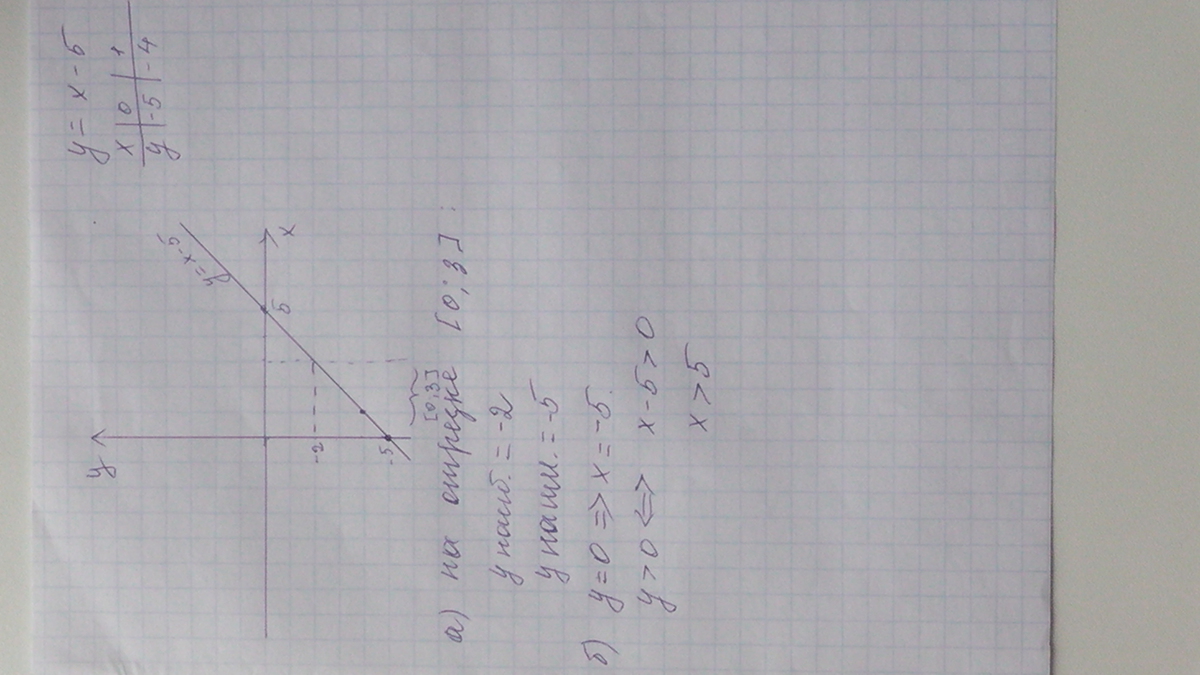 y = x - 5
x | 0 | 1
y | -5 | -4
y
y = x-5
5
x
-2
-5
[0;3]
а) на отрезке [0; 3] :
y наиб. = -2
y наим. = -5
б) y = 0 => x = -5.
y > 0 <=> x - 5 > 0
x > 5